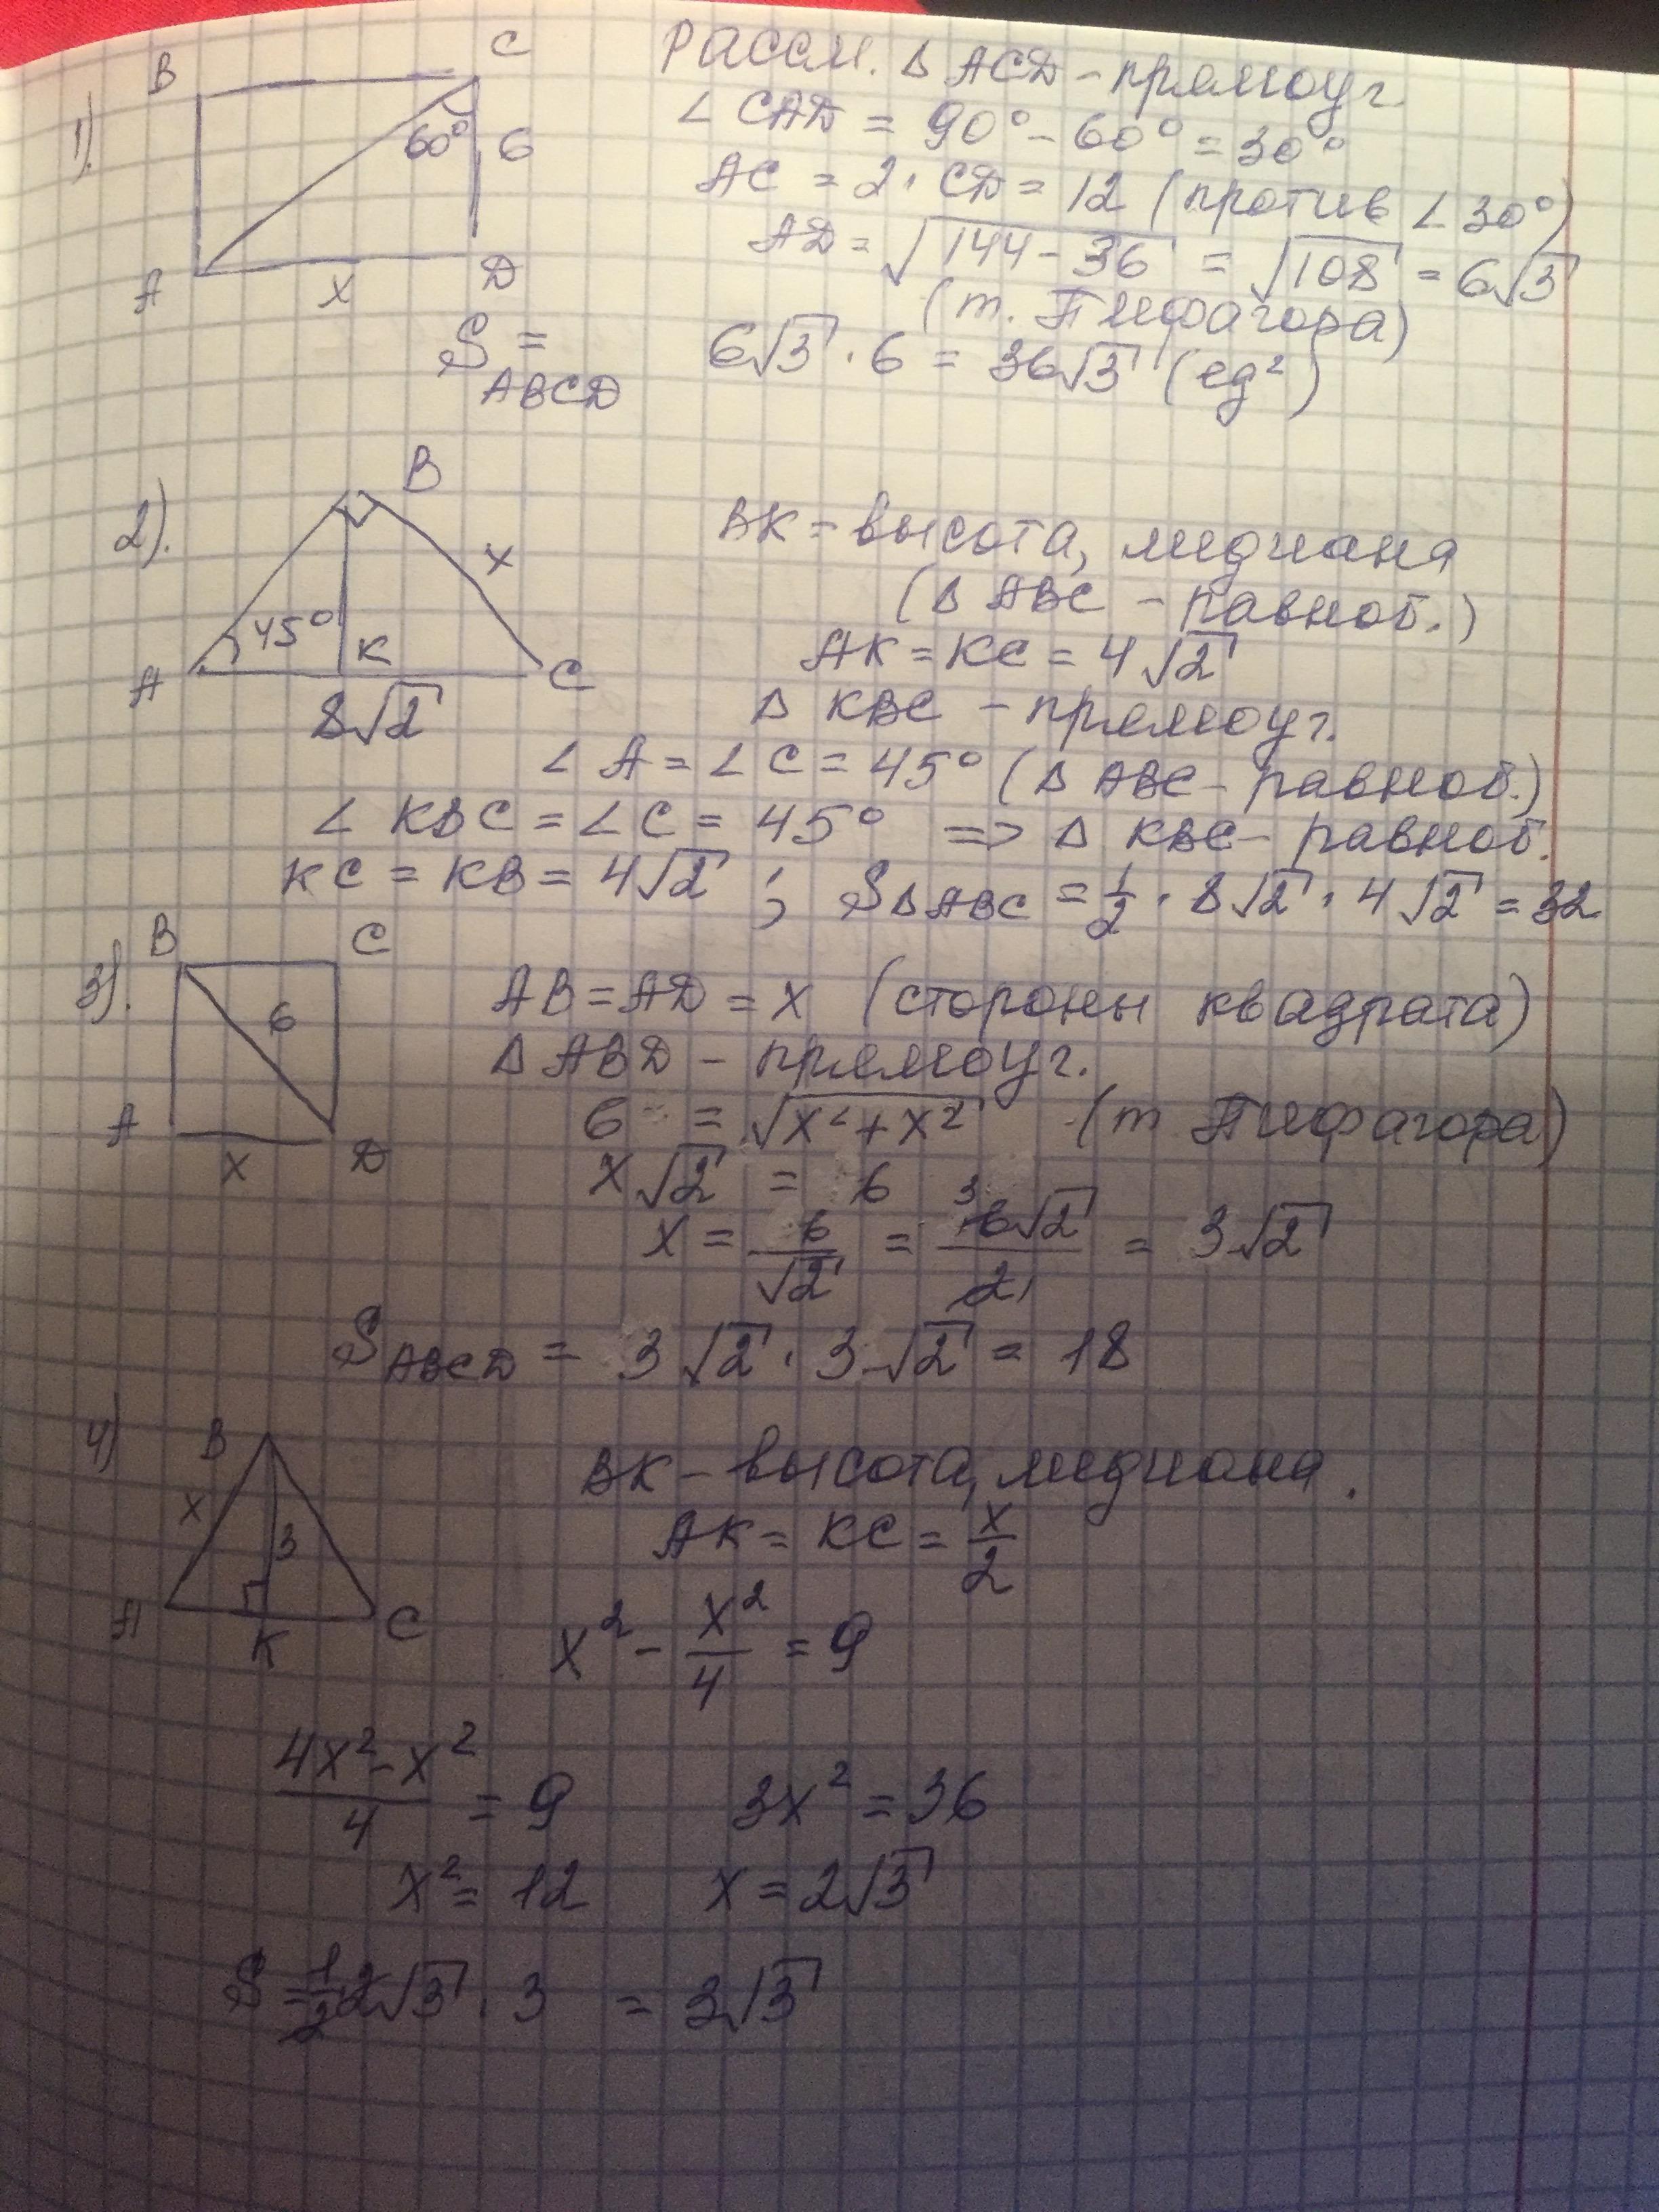 1).
B
C
60°
6
A
x
D
Рассм. Δ ACD – прямоуг.
∠ CAD = 90° – 60° = 30°
AC = 2 · CD = 12 (против ∠ 30°)
AD = √144 – 36 = √108 = 6√3
(т. Пифагора)
S ABCD = 6√3 · 6 = 36√3 (ед²)
2).
B
x
45°
K
A
C
8√2
BK – высота, медиана
(Δ ABC – равноб.)
AK = KC = 4√2
Δ KBC – прямоуг.
∠ A = ∠ C = 45° (Δ ABC – равноб.)
∠ KBC = ∠ C = 45° => Δ KBC – равноб.
KC = KB = 4√2 ; SΔABC = 1/2 · 8√2 · 4√2 = 32
3).
B
C
6
A
x
D
AB = AD = x (стороны квадрата)
Δ ABD – прямоуг.
6 = √x² + x² (т Пифагора)
x√2 = 6
x = 6/√2 = 6√2/2 = 3√2
3
1
S ABCD = 3√2 · 3√2 = 18
4)
B
x
3
A
K
C
BK – высота, медиана.
AK = KC = x/2
x² – x²/4 = 9
4x² – x²/4 = 9 3x² = 36
x² = 12 x = 2√3
S = 1/2 · 2√3 · 3 = 3√3